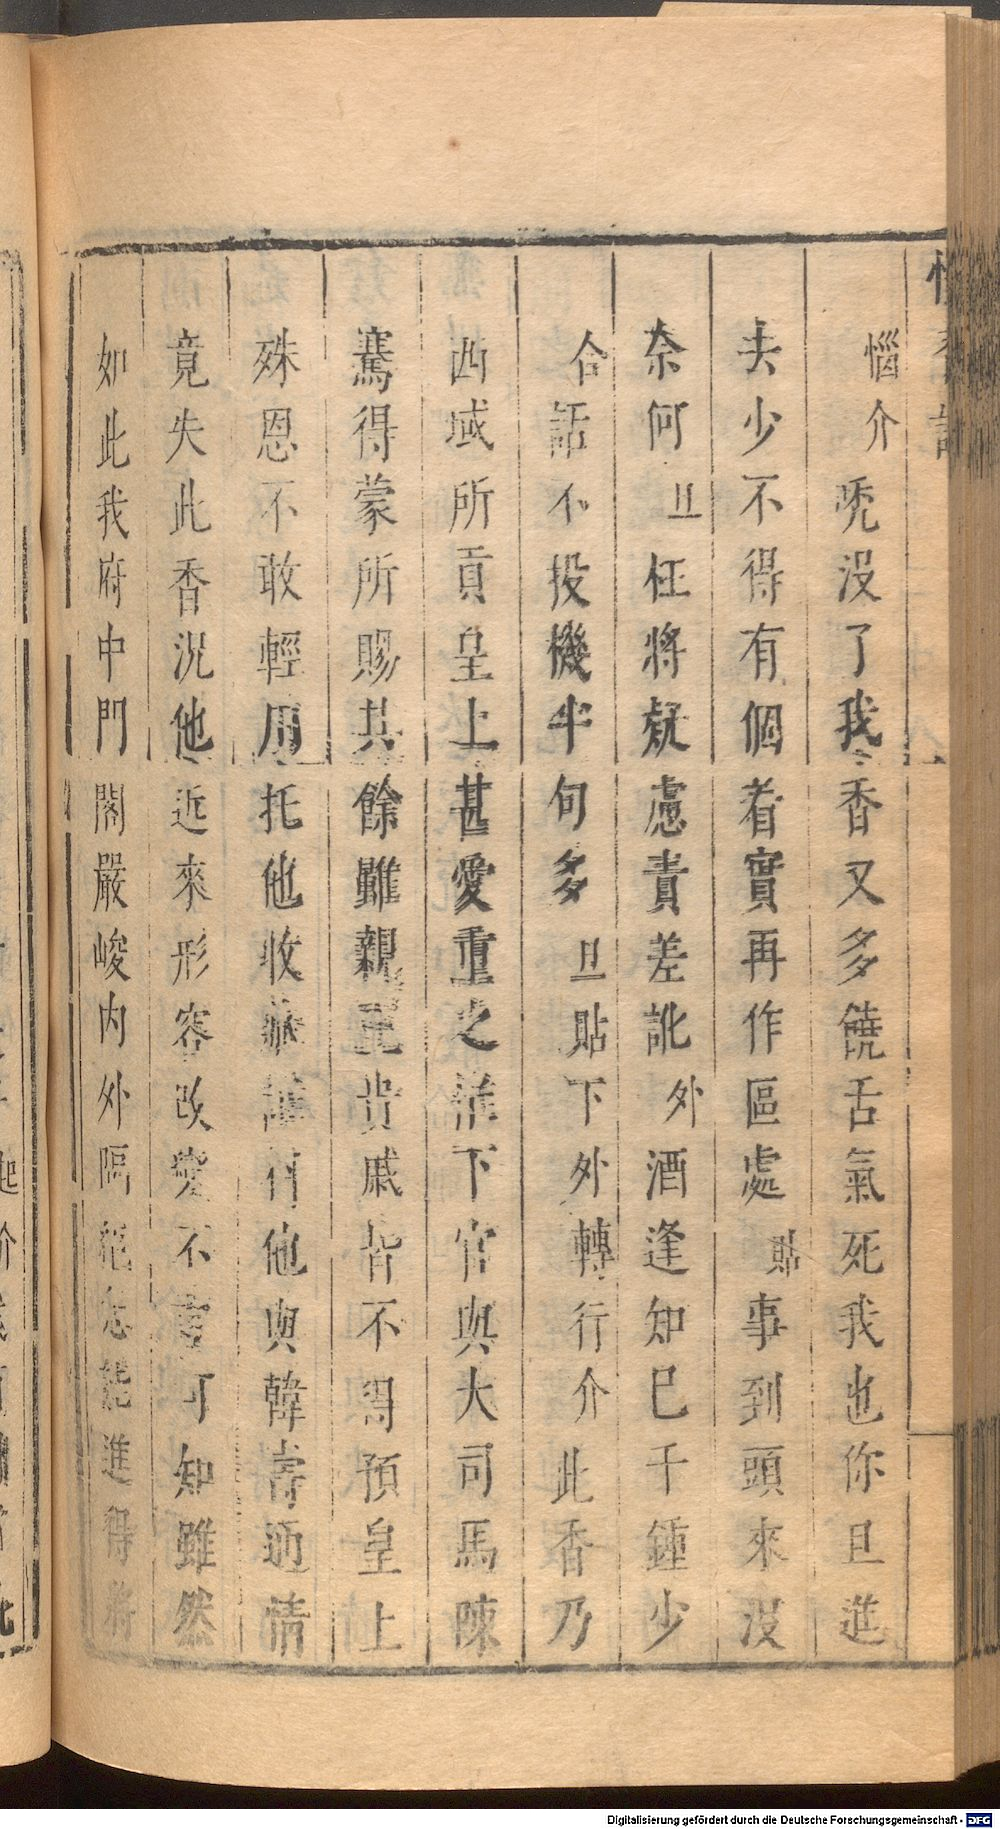 惱介禿沒了我香又多饒舌氣死我也你且進
去少不得有個着實再作區處貼事到頭來沒
奈何旦枉將疑慮責差訛外酒逢知已千鍾少
合話不投機半句多旦貼下外轉行介此香乃
西域所貢皇上甚愛重之惟下官與大司馬陳
騫得蒙所賜其餘雖親王貴戚皆不得預皇上
殊恩不敢輕用托他收藏誰料他與韓壽通情
竟失此香况他近來形容改變不言可知雖然
如此我府中門閣嚴峻內外隔絕怎能進得將
Digitalisierung gefördert durch die Deutsche Forschungsgemeinschaft - DFG